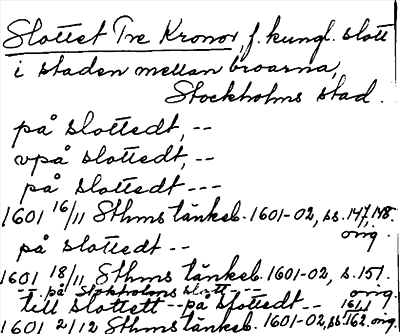 Slottet Tre Kronor, f. kungl. slott
i staden mellan broarna,
Stockholms stad.
på slottedt, --
vpå slottedt, --
på slottedt ---
1601 16/11 Sthms tänkeb. 1601-02, ss. 147, 148.
orig.
på slottedt --
1601 18/11 Sthms tänkeb. 1601-02, s. 151.
-- på Stockholms slott --- orig.
till slottett -- på slottedt -- 161,
1601 2/12 Sthms tänkeb. 1601-02, ss. 162. orig.